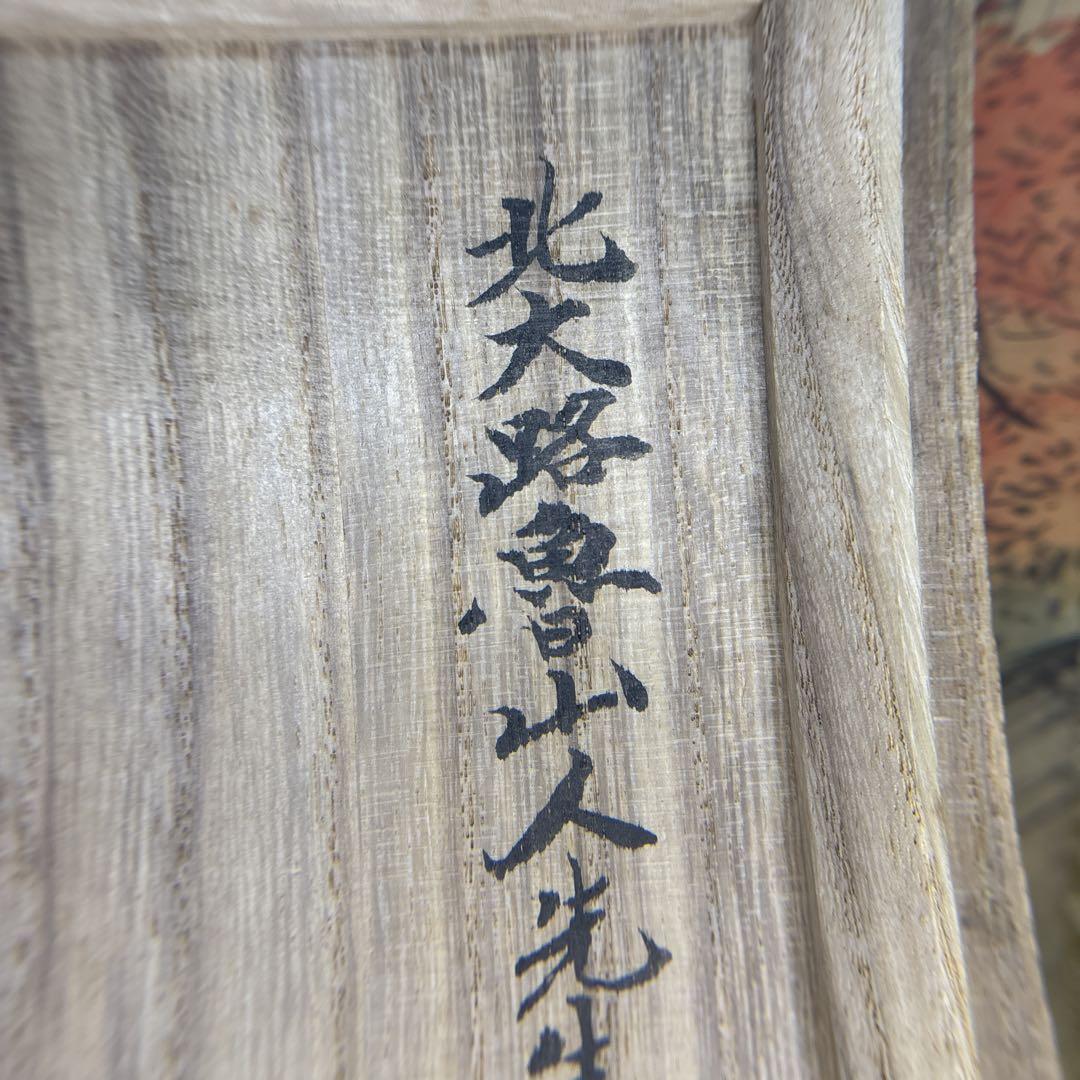 北大路魯山人先生